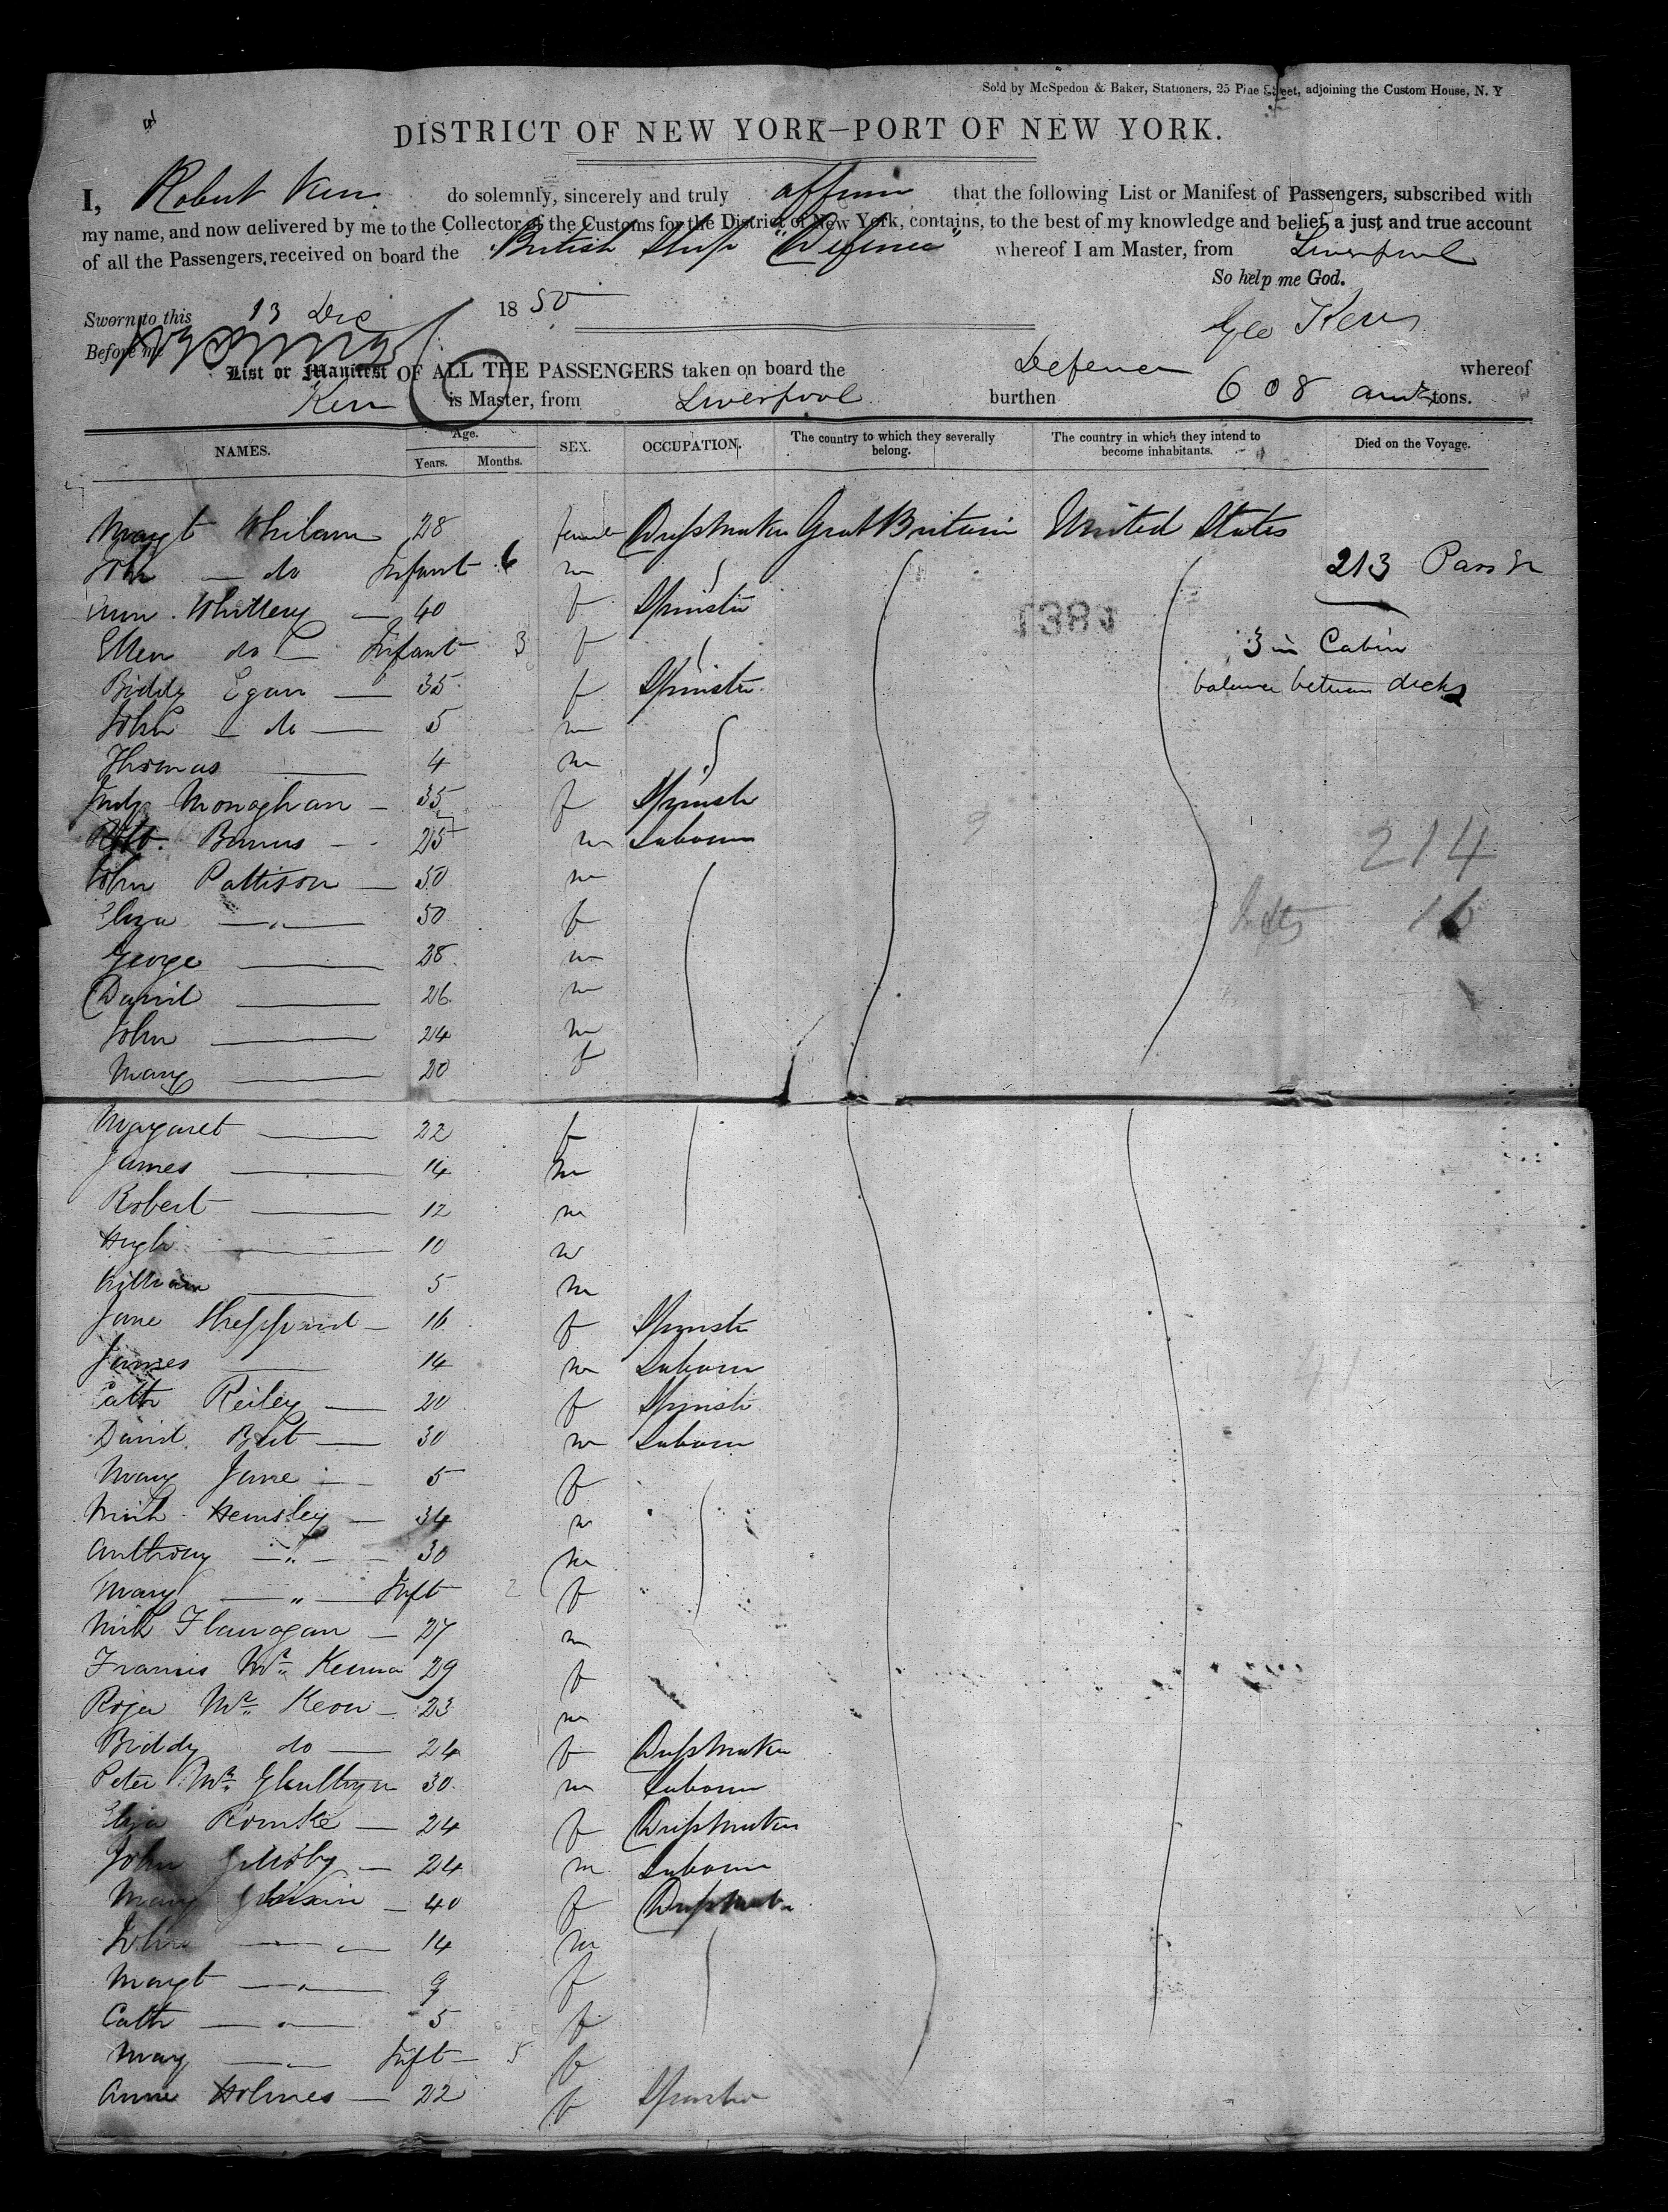 Sold by McSpedon & Baker, Stationers, 25 Pine Street, adjoining the Custom House, N. Y
DISTRICT OF NEW YORK—PORT OF NEW YORK.
I, Robert Kerr do solemnly, sincerely and truly affirm that the following List or Manifest of Passengers, subscribed with
my name, and now delivered by me to the Collector of the Customs for the District of New York, contains, to the best of my knowledge and belief, a just and true account
of all the Passengers, received on board the British Ship "Defence" whereof I am Master, from Liverpool
So help me God.
Sworn to this 13 Dec 1850
Geo Kerr
Before me
List or Manifest OF ALL THE PASSENGERS taken on board the Defence whereof
Kerr is Master, from Liverpool burthen 608 tons.
NAMES. Age. Years. Months. SEX. OCCUPATION. The country to which they severally belong. The country in which they intend to become inhabitants. Died on the Voyage.
Margt Whelam 28 female Dressmaker Great Britain United States
John — do Infant 6 m 213 Passgr
Ann Whittery — 40 f Spinster
Ellen do — Infant 3 f 3 in Cabin
Biddy Egan — 35 f Spinster balance between decks
John — do — 5 m
Thomas — 4 m
Judy Monaghan — 35 f Spinster
Burns — 25 m Labourer 214
John Pattison — 50 m
Eliza — " — 50 f
George — 28 m
David — 26 m
John — 24 m
Mary — 20 f
Margaret — 22 f
James — 14 m
Robert — 12 m
Hugh — 10 m
William — 5 m
Jane Sheppard — 16 f Spinster
James — 14 m Labourer
Cath Reiley — 20 f Spinster
David Bat — 30 m Labourer
Mary Jane — 5 f
Mich Hemsley — 34 m
Anthony — " — 30 m
Mary — " — Inft 2 f
Mich Flanagan — 27 m
Francis Mc Kenna 29 f
Roger Mc Keon — 23 m
Biddy do — 24 f Dressmaker
Peter Mc 30 m Labourer
Eliza Rourke — 24 f Dressmaker
John — 24 m Labourer
Mary — 40 f Dressmaker
John — " — 14 m
Margt — " — 9 f
Cath — " — 5 f
Mary — " — Inft — 5 f
Anne Holmes — 22 f Spinster